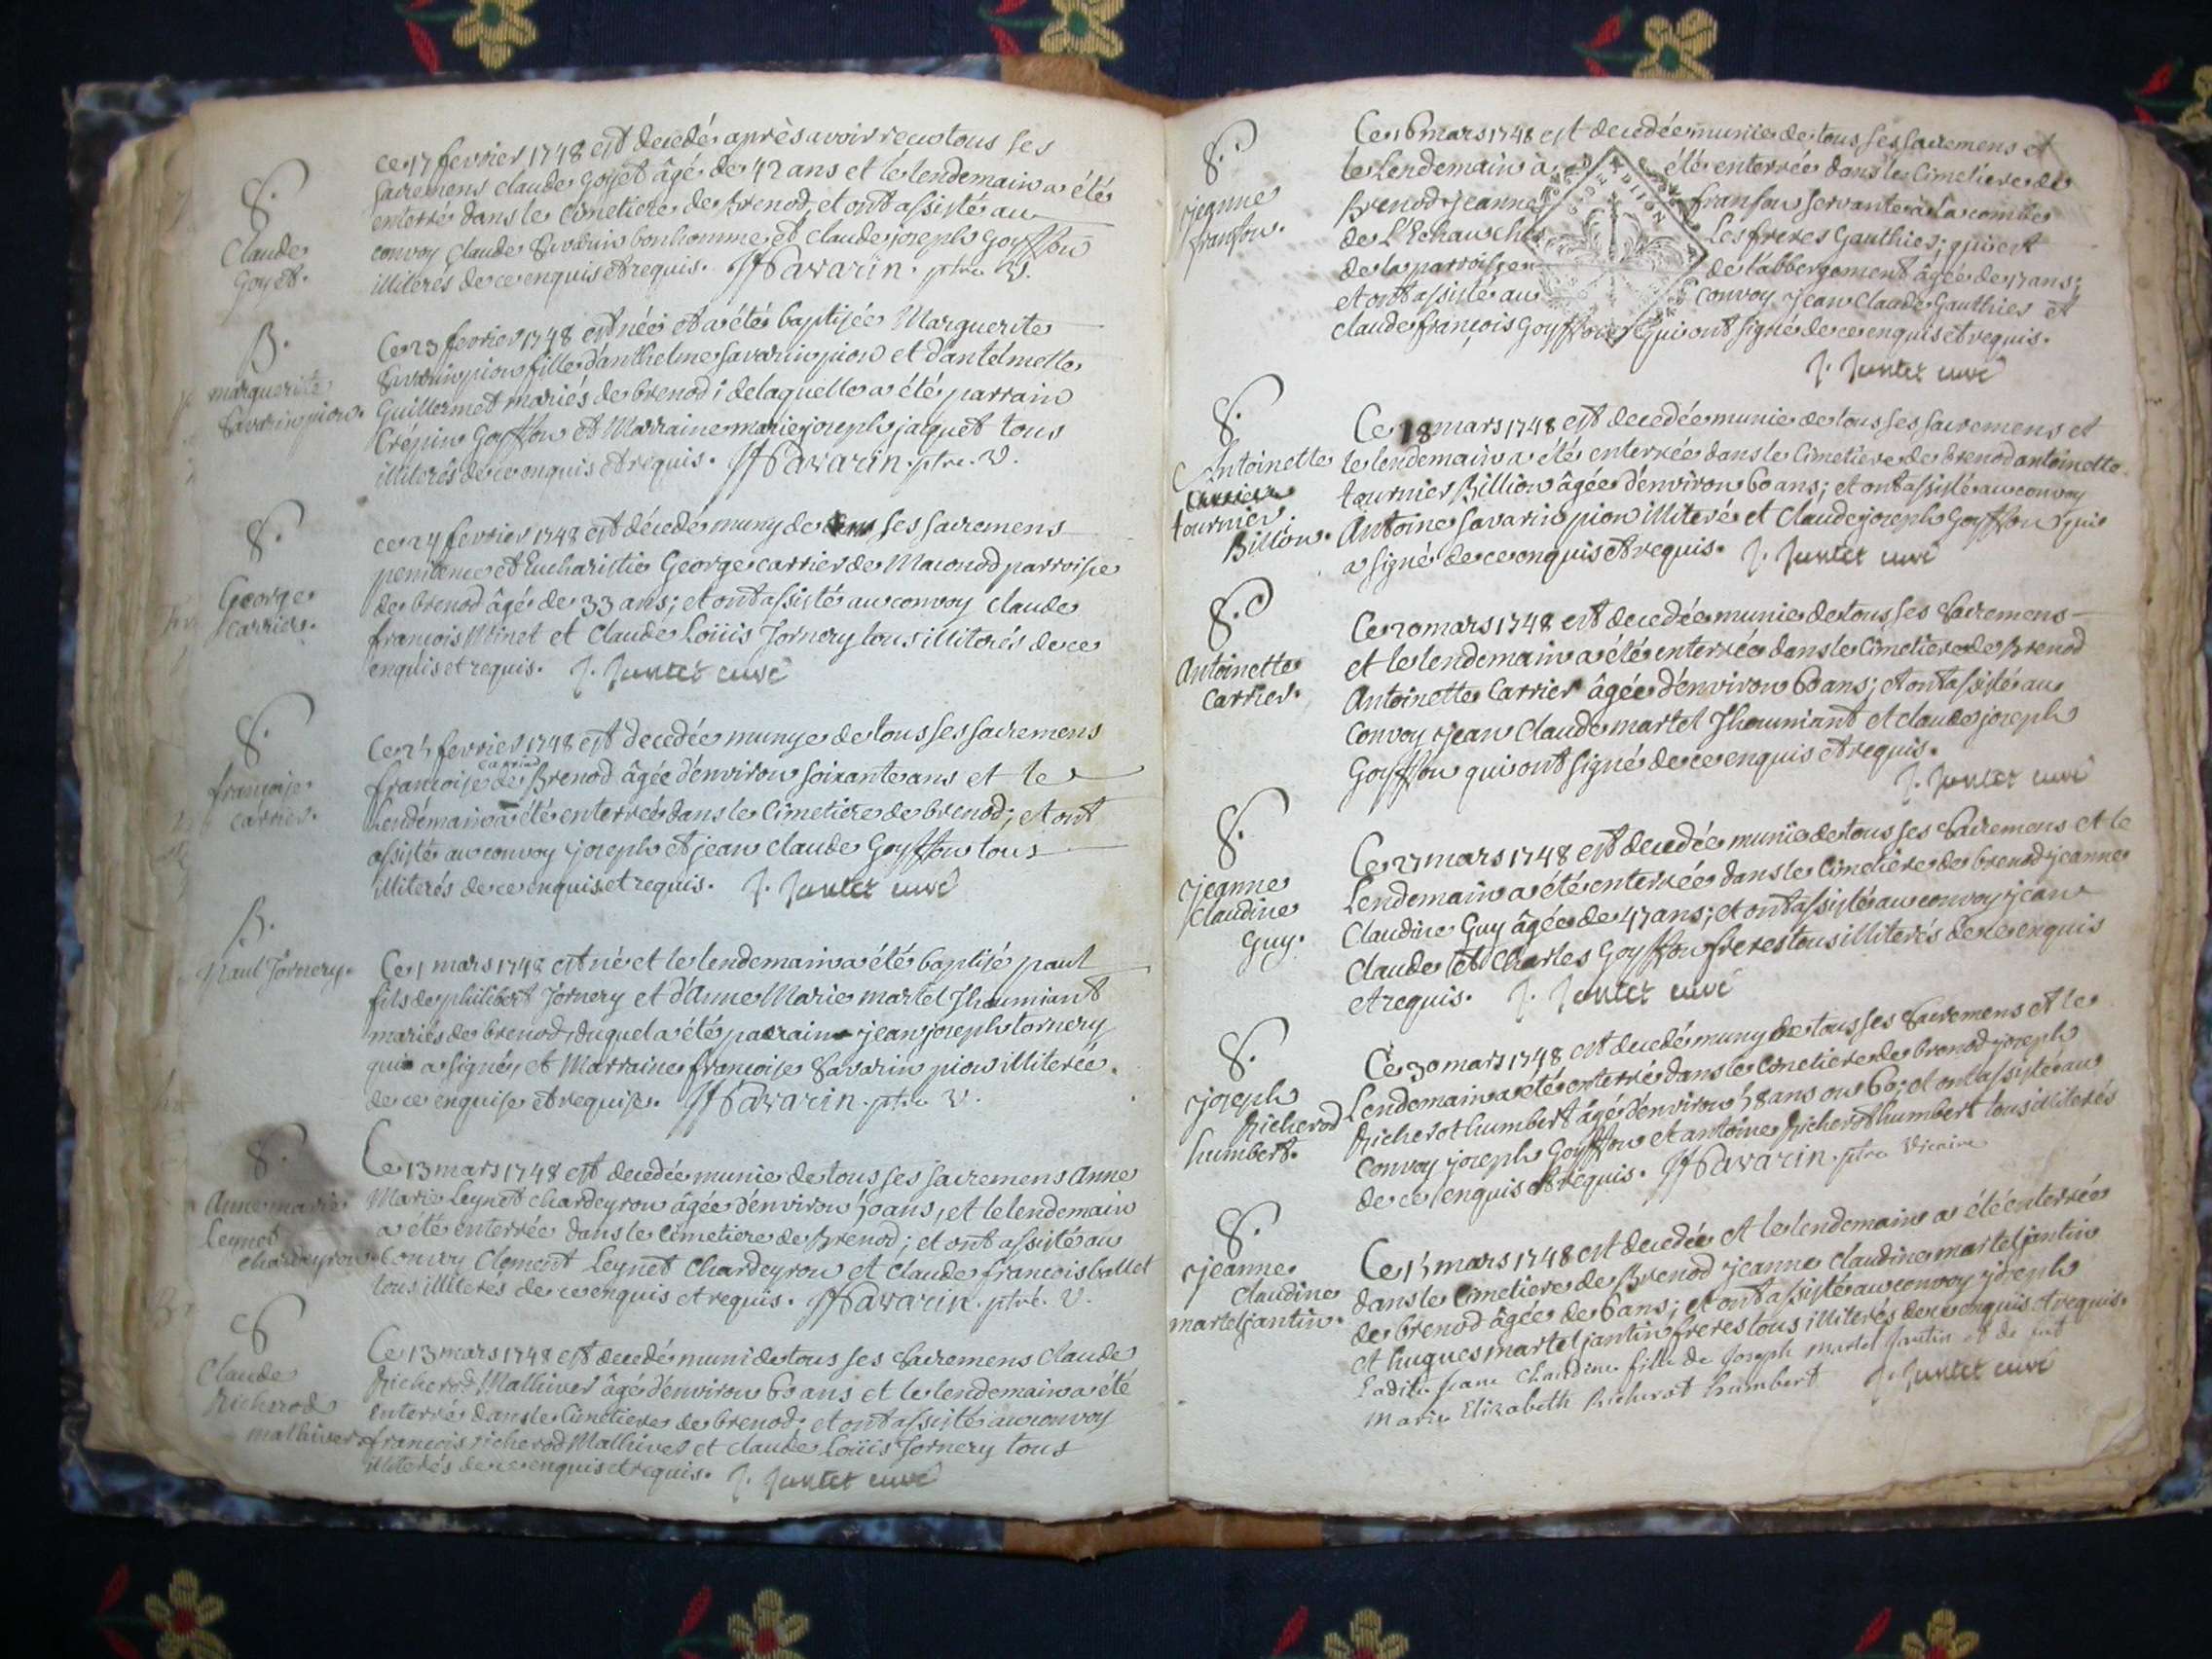 S.
Claude
Goyet.
ce 17 fevrier 1748 est decedé après avoir recu tous ses
sacremens claude Goyet âgé de 42 ans et le lendemain a été
enterré dans le cimetiere de Brenod, et ont assisté au
convoy Claude Savarin bonhomme et claude joseph Goyffon
illiterés de ce enquis et requis. Savarin. ptre V.
B.
marguerite
Savarin pion.
Ce 23 fevrier 1748 est née et a été baptisée Marguerite
Savarin pion fille d'anthelme Savarin pion et d'antelmette
Guillermet mariés de brenod; de laquelle a été parrain
Crépin Goyffon et Marraine marie joseph jacquet tous
illiterés de ce enquis et requis. Savarin. ptre. V.
S.
George
carrier.
ce 24 fevrier 1748 est décedé muny de ses sacremens
penitence et Eucharistie George carrier de Maconod parroisse
de brenod âgé de 33 ans; et ont assisté au convoy claude
francois Minet et Claude Loüis Jornery tous illiterés de ce
enquis et requis. J. Juntet curé
S.
françoise
carrier.
Ce 25 fevrier 1748 est decedée munye de tous ses sacremens
carrier
francoise de Brenod âgée d'environ soixante ans et le
lendémain a été enterrée dans le Cimetiere de brenod; et ont
assisté au convoy joseph et jean claude Goyffon tous
illiterés de ce enquis et requis. J. Juntet curé
B.
paul Jornery.
Ce 1 mars 1748 est né et le lendemain a été baptisé paul
fils de philibert Jornery et d'Anne Marie martel Jhoumiant
mariés de brenod, duquel a été parrain jean joseph tornery
qui a signé, et Marraine francoise Savarin pion illiterée
de ce enquise et requise. Savarin. ptre V.
S.
Anne marie
Leynet
chardeyron
Ce 13 mars 1748 est decedée munie de tous ses sacremens Anne
Marie Leynet chardeyron âgée d'environ 50 ans, et le lendemain
a été enterrée dans le Cimetiere de Brenod; et ont assisté au
Convoy Clement Leynet Chardeyron et claude francois ballet
tous illiterés de ce enquis et requis. Savarin. ptré. V.
S
Claude
Richerod
mathiver
Ce 13 mars 1748 est decedé muni de tous ses Sacremens claude
Richerod Mathiver âgé d'environ 60 ans et le lendemain a été
enterré dans le Cimetiere de brenod; et ont assisté au convoy
francois richerod Mathiver et claude Loüis Jornery tous
illiterés de ce enquis et requis. J. Juntet curé
S.
jeanne
franson.
Ce 16 mars 1748 est decedée munie de tous ses sacremens et
le lendemain a été enterrée dans le Cimetiere de
Brenod jeanne franson servante à la combe
de L'Echauche Les freres Gauthier; qui est
de la parroisse de l'abbergement âgée de 17 ans;
et ont assisté au convoy jean claude Gauthier et
claude françois Goyffon qui ont signé de ce enquis et requis.
J. Juntet curé
S.
Antoinette
tournier
Billion.
Ce 18 mars 1748 est decedée munie de tous ses sacremens et
le lendemain a été enterrée dans le Cimetiere de brenod antoinette
tournier Billion âgée d'environ 60 ans; et ont assisté au convoy
Antoine Savarin pion illiteré et Claude joseph Goyffon qui
a signé de ce enquis et requis. J. Juntet curé
S.
Antoinette
carrier.
Ce 20 mars 1748 est decedée munie de tous ses Sacremens
et le lendemain a été enterrée dans le Cimetiere de Brenod
Antoinette Carrier âgée d'environ 60 ans; et ont assisté au
Convoy jean Claude martel Jhoumiant et claude joseph
Goyffon qui ont signé de ce enquis et requis.
J. Juntet curé
S.
jeanne
claudine
Guy.
Ce 27 mars 1748 est decedée munie de tous ses Sacremens et le
Lendemain a été enterrée dans le Cimetiere de brenod jeanne
Claudine Guy âgée de 47 ans; et ont assisté au convoy jean
Claude et Charles Goyffon freres tous illiterés de ce enquis
et requis. J. Juntet curé
S.
joseph
Richerod
humbert.
Ce 30 mars 1748 est decedé muny de tous ses Sacremens et le
Lendemain a été enterré dans le Cimetiere de brenod joseph
Richerot humbert âgé d'environ 58 ans ou 60; et ont assisté au
Convoy joseph Goyffon et antoine Richerot humbert tous illiterés
de ce enquis et requis. Savarin. ptre Vicaire
S.
jeanne
claudine
martel jantin.
Ce 15 mars 1748 est decedée et le lendemain a été enterrée
dans le Cimetiere de Brenod jeanne claudine martel jantin
de brenod âgée de 6 ans; et ont assisté au convoy joseph
et hugues martel jantin freres tous illiterés de ce enquis et requis.
Ladite jeane Claudine fille de Joseph martel Jantin et de
marie Elizabeth Richerot humbert J. Juntet curé